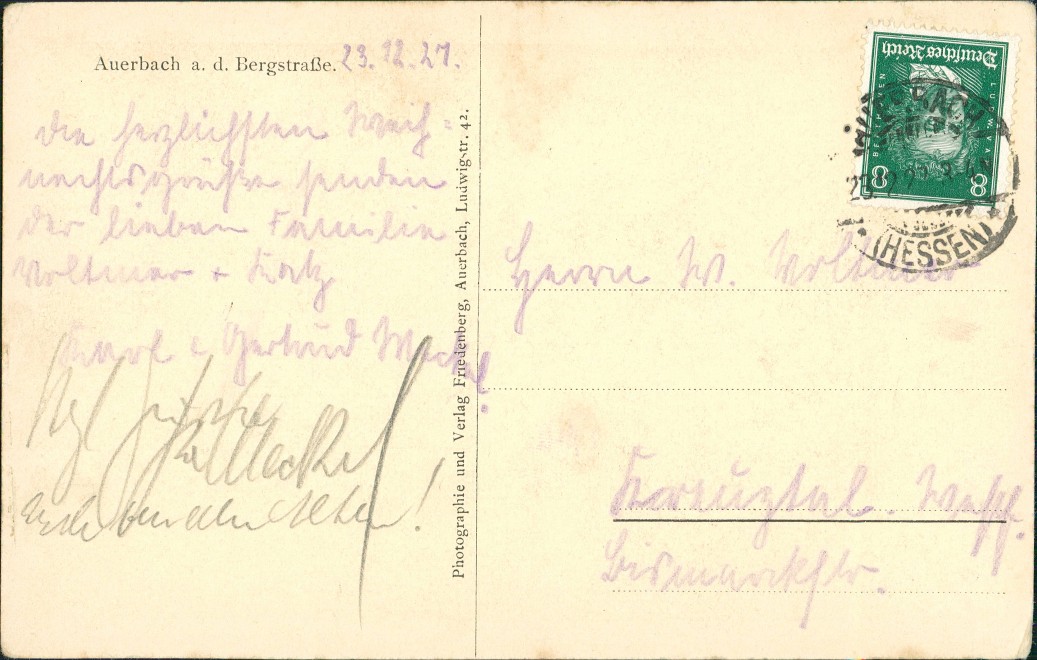 Auerbach a. d. Bergstraße. 23.12.27.
die herzlichsten Weih-
nachtsgrüße senden
der lieben Familie
Voltmer + Katz
Karl & Gertrud Meckel
Meckel
Photographie und Verlag Friedenberg, Auerbach, Ludwigstr. 42.
Deutsches Reich
8 8
(HESSEN)
Herrn W. Voltmer
Kreuztal. Westf.
Bismarckstr.